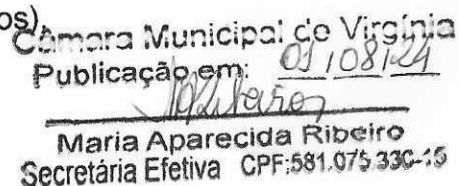 os)
Câmara Municipal de Virgínia
Publicação em: 01/08/24
Maria Aparecida Ribeiro
Secretária Efetiva CPF:581.075.330-15